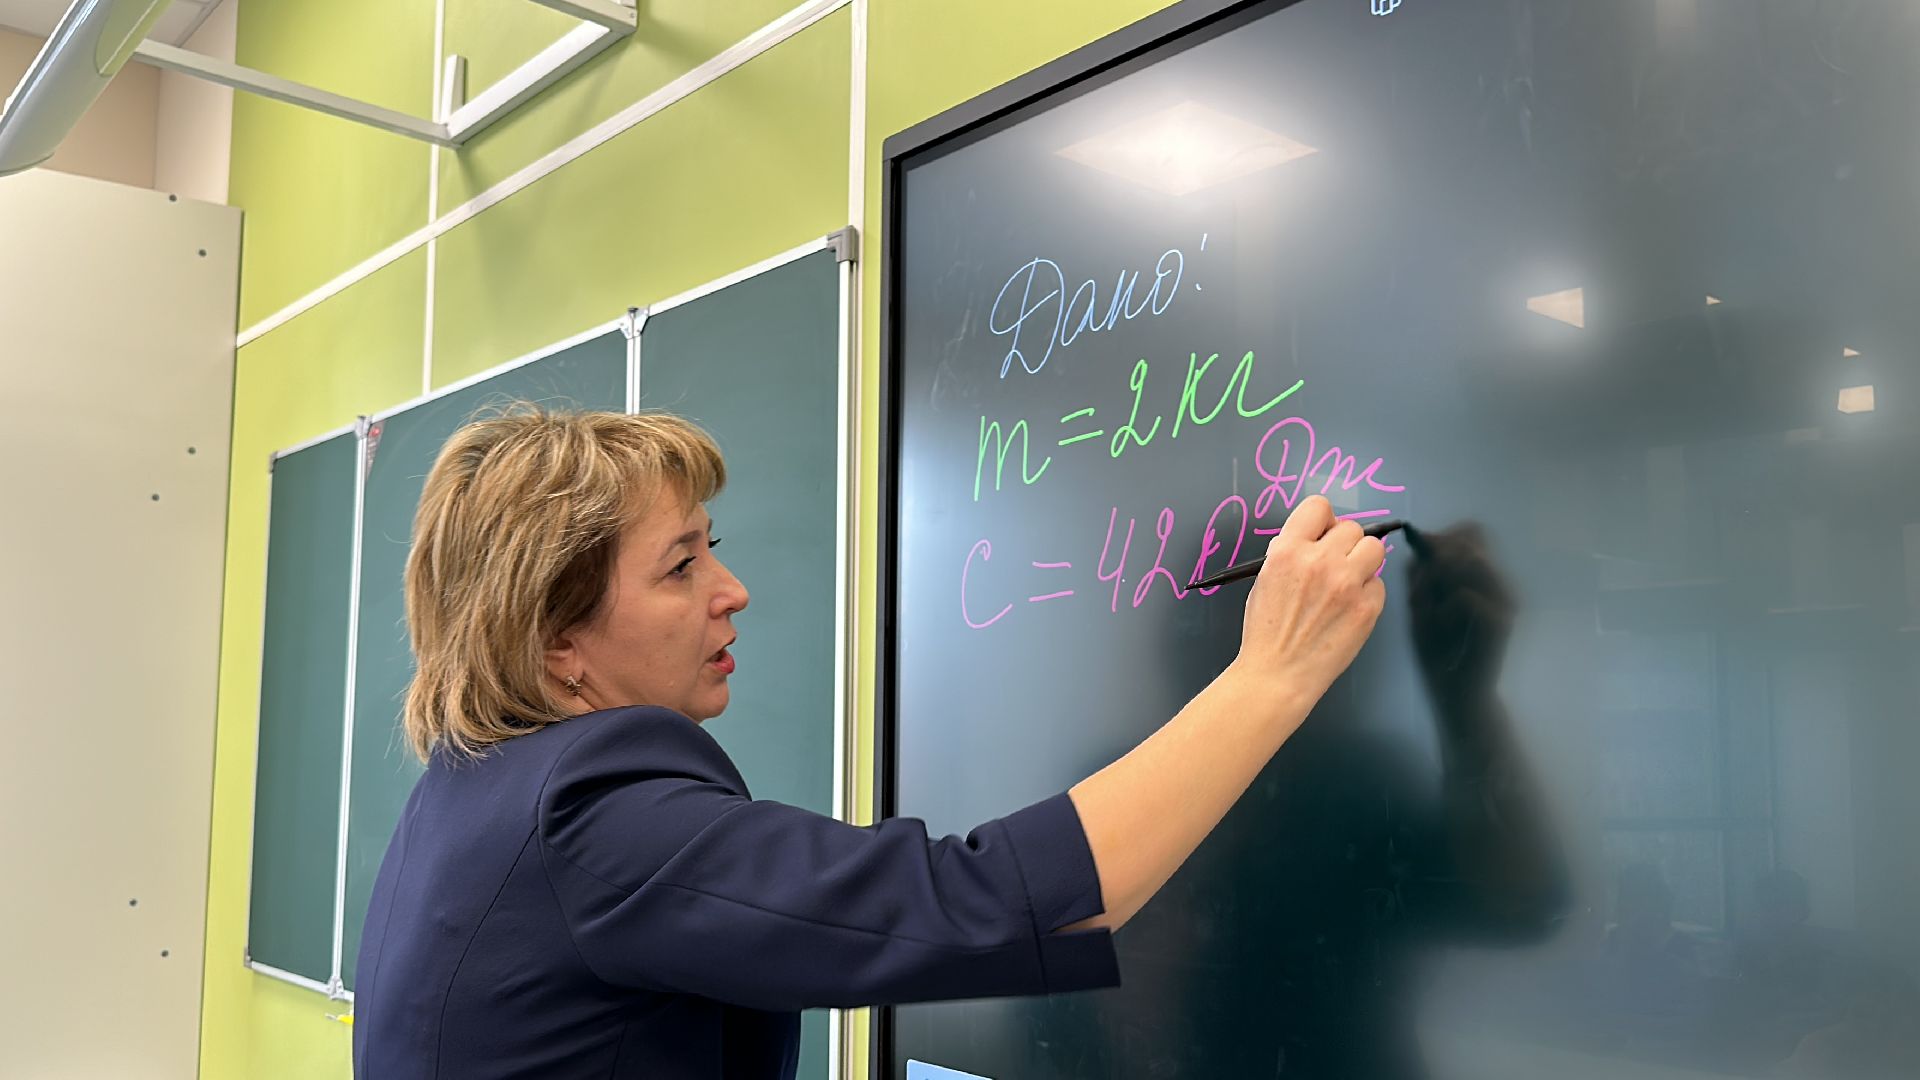 Дано:
m = 2 кг
c = 420 Дж